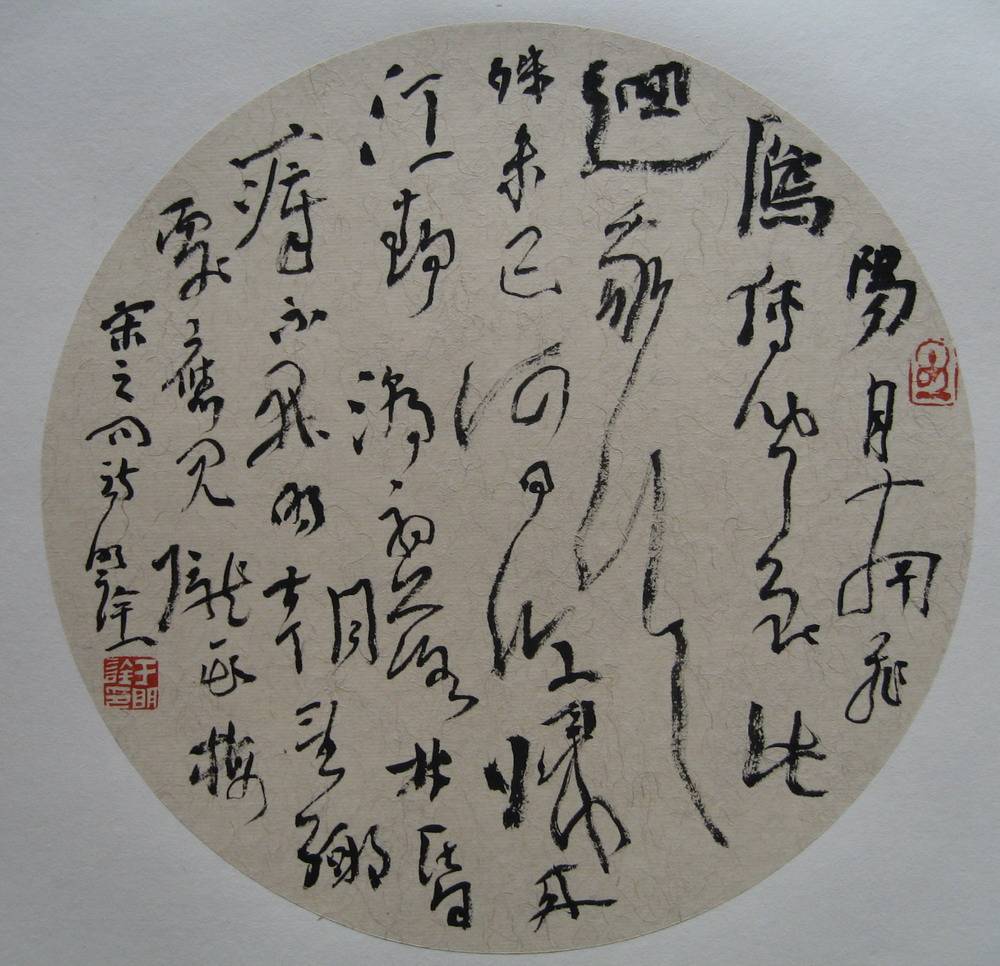 陽月南飛
鴈傳聞至此
迴我行
殊未已何日復歸來
江静潮初落林昏
瘴不開明朝望鄉
處應見隴頭梅
宋之问詩 明詮
于明詮印